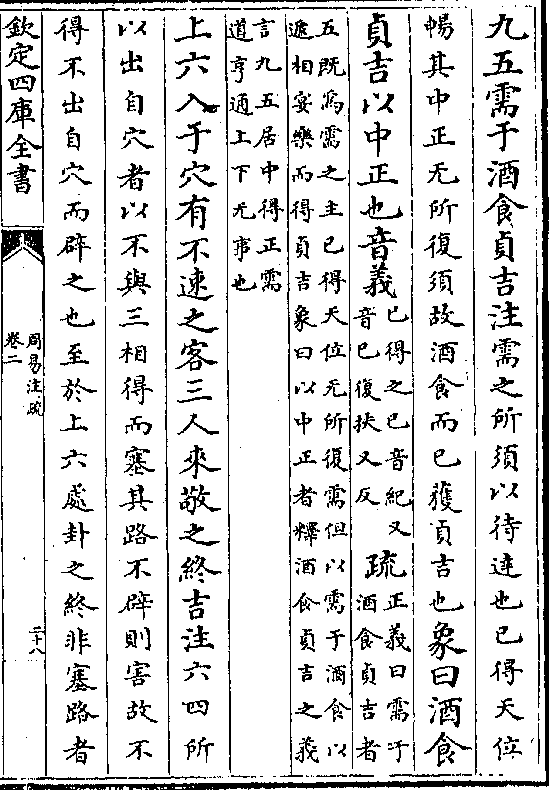 九五需于酒食貞吉注需之所須以待逹也已得天位
暢其中正无所復須故酒食而已獲貞吉也象曰酒食
貞吉以中正也音義已得之已音紀又
音已復扶又反疏正義曰需于
酒食貞吉者
五既為需之主已得天位无所復需但以需于酒食以
遞相宴樂而得貞吉象曰以中正者釋酒食貞吉之義
言九五居中得正需
道亨通上下无事也
上六入于穴有不速之客三人來敬之終吉注六四所
以出自穴者以不與三相得而塞其路不辟則害故不
得不出自穴而辟之也至於上六處卦之終非塞路者
欽定四庫全書
周易注疏
卷二
二十八